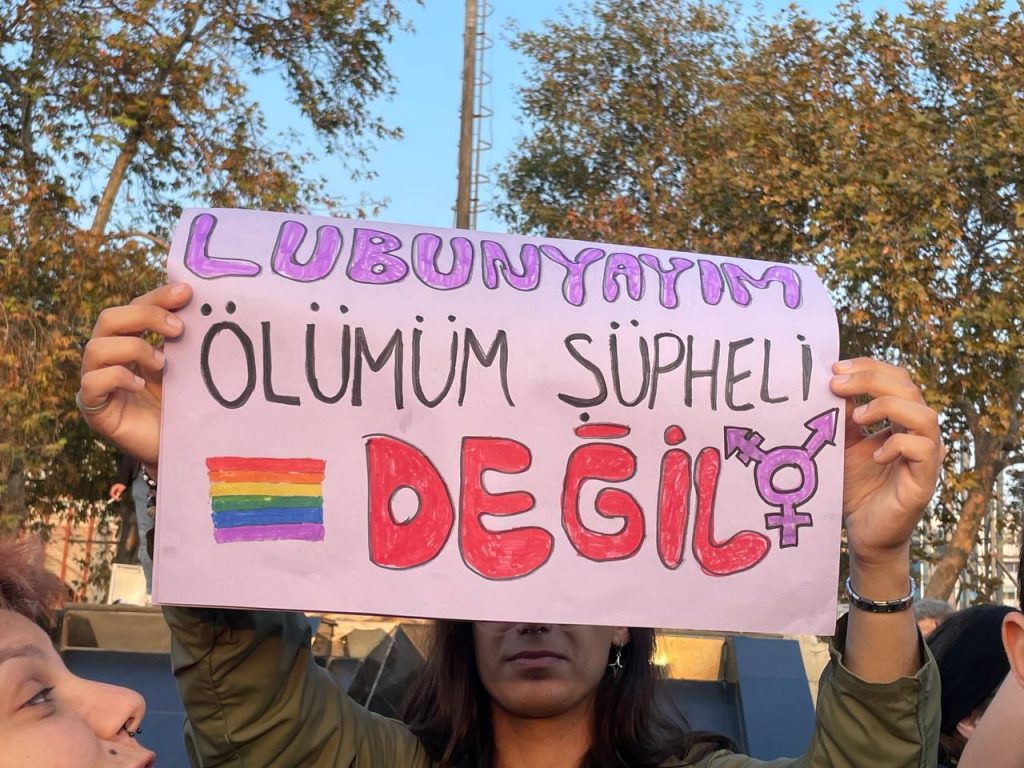 LUBUNYAYIM
ÖLÜMÜM ŞÜPHELİ
DEĞİL